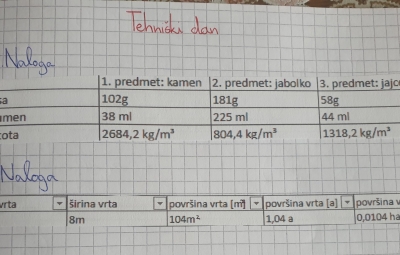 Tehnički dan
Naloga
1. predmet: kamen 2. predmet: jabolko 3. predmet: jajc
sa 102g 181g 58g
umen 38 ml 225 ml 44 ml
tota 2684,2 kg/m³ 804,4 kg/m³ 1318,2 kg/m³
Naloga
vrta širina vrta površina vrta [m²] površina vrta [a] površina v
8m 104m² 1,04 a 0,0104 ha